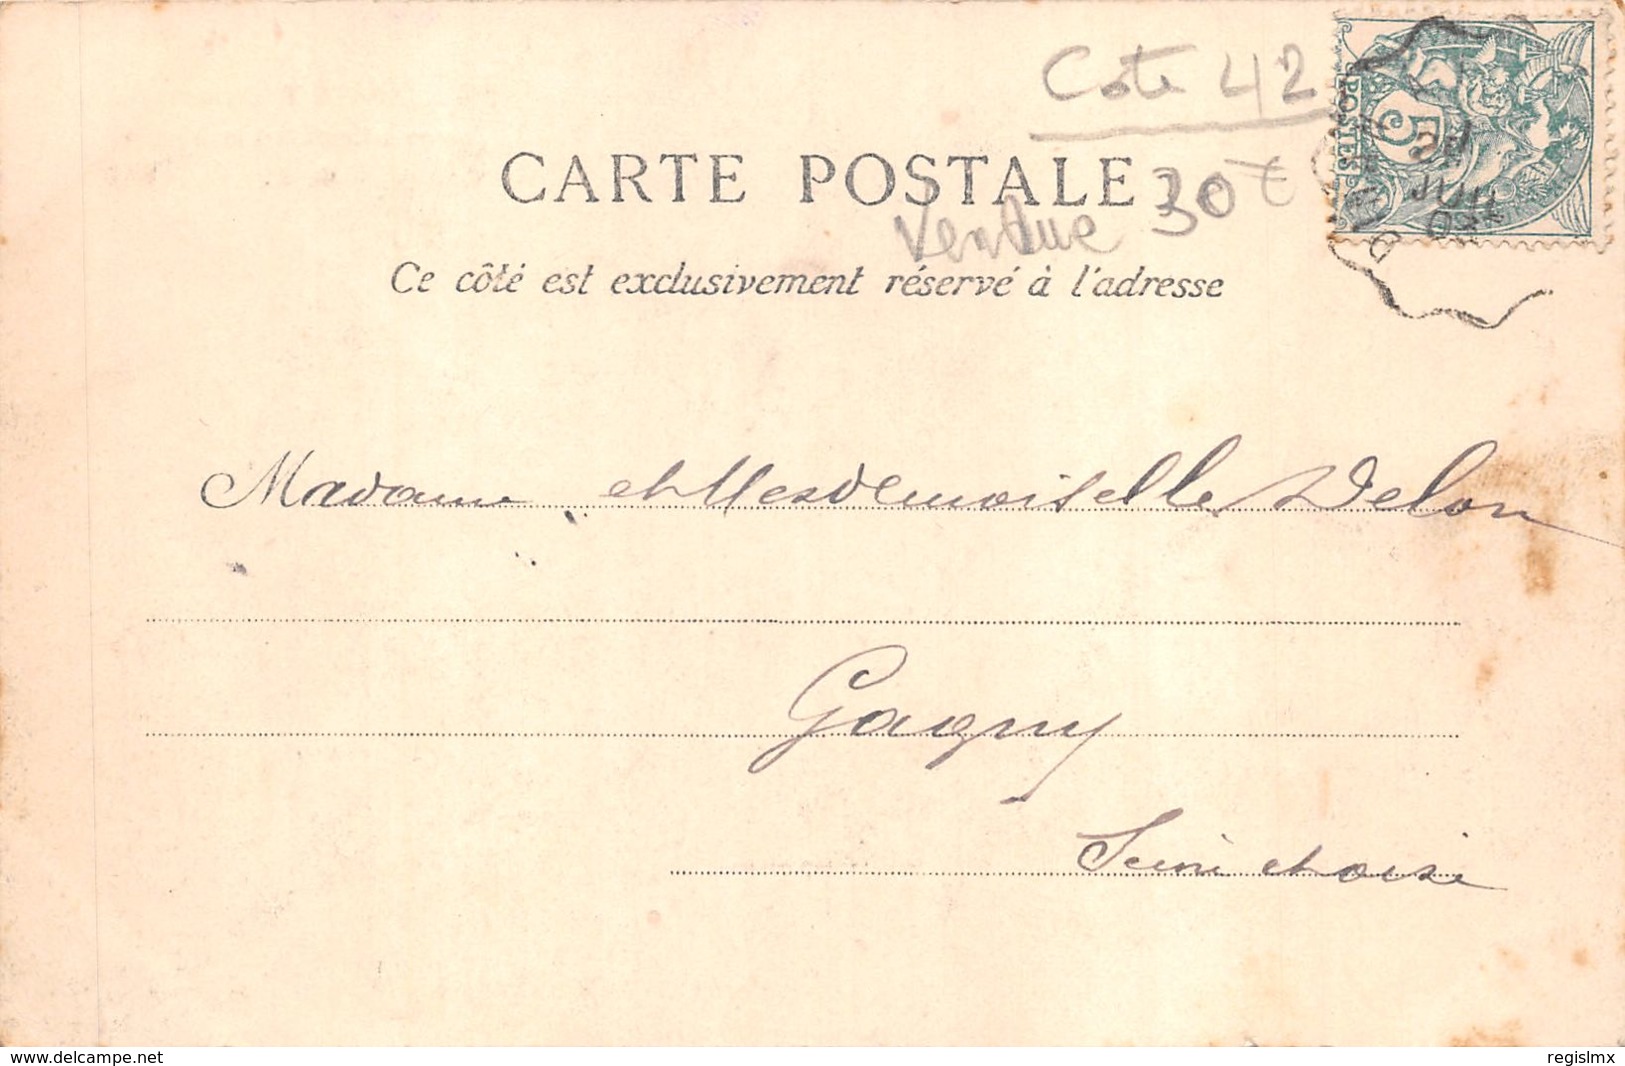 Cote 42
POSTES
5
CARTE POSTALE
Vendue 30€
JUIL
03
Ce côté est exclusivement réservé à l'adresse
Madame et Mesdemoiselle Delon
Gagny
Seine et oise
www.delcampe.net
regislmx